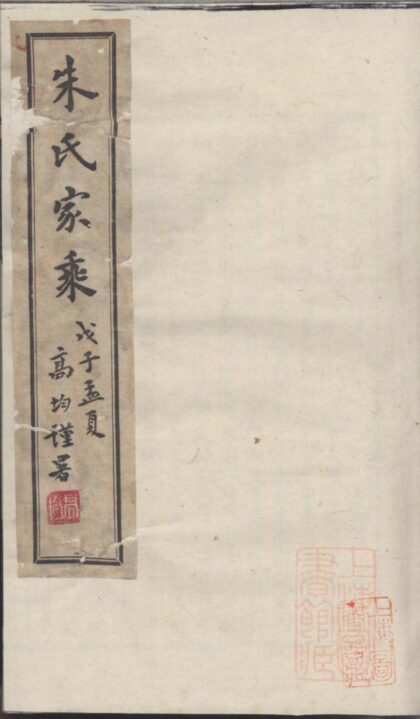 朱氏家乘
戊子孟夏
高均謹署